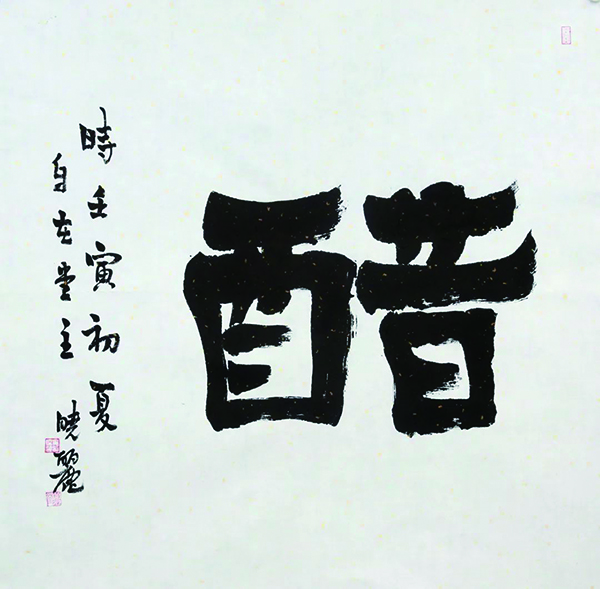 醋
時壬寅初夏
自在堂主
曉麗